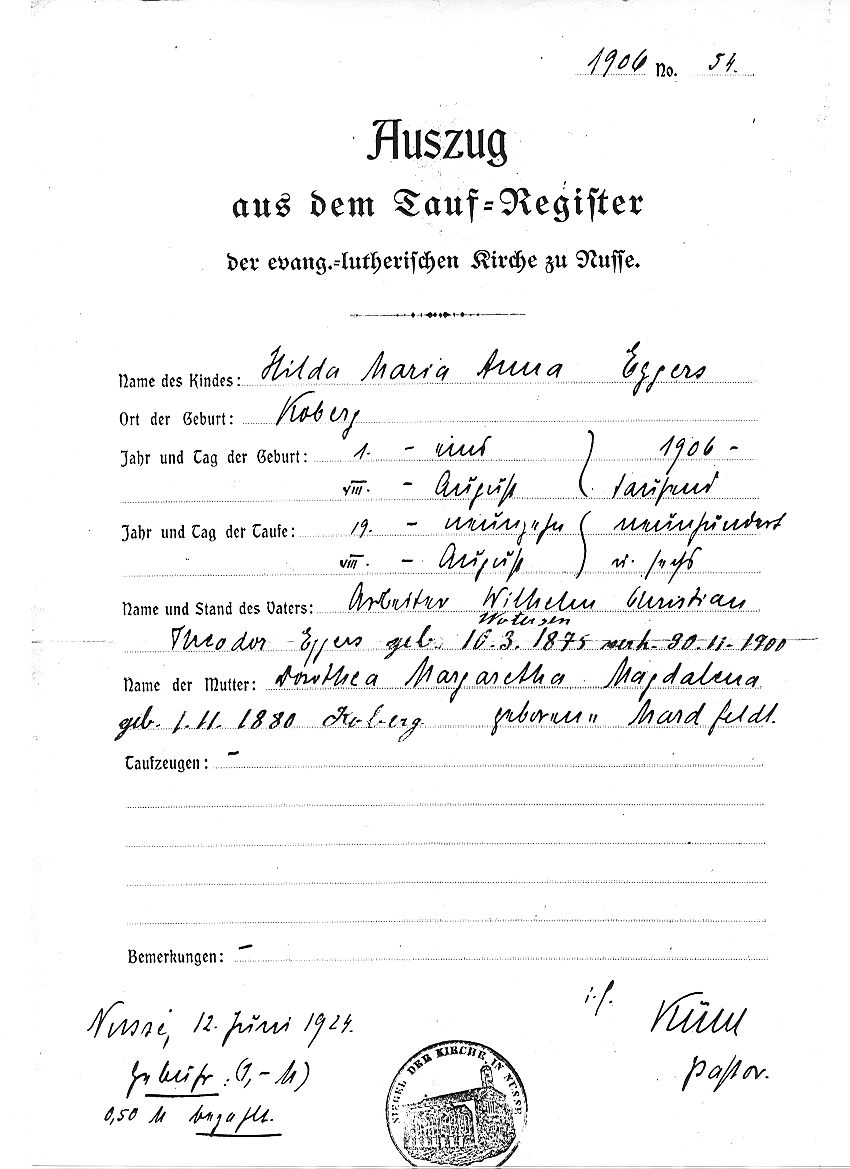 1906 No. 54.
Auszug
aus dem Tauf-Register
der evang.-lutherischen Kirche zu Nusse.
Name des Kindes: Hilda Maria Anna Eggers
Ort der Geburt: Koberg
Jahr und Tag der Geburt: 1. - eins 1906 -
VIII. - August tausend
Jahr und Tag der Taufe: 19. - neunzehn neunhundert
VIII. - August u. sechs
Name und Stand des Vaters: Arbeiter Wilhelm Christian
Theodor Eggers geb. 16.3. 1875 verh. 30.11.1900
Name der Mutter: Dorothea Margaretha Magdalena
geb. 1.11. 1880 Koberg geborene Mardfeldt.
Taufzeugen: -
Bemerkungen: -
Nusse, 12. Juni 1924.
Gebühr: (1,- M)
0,50 M bezahlt.
Pastor.
SIEGEL DER KIRCHE IN NUSSE